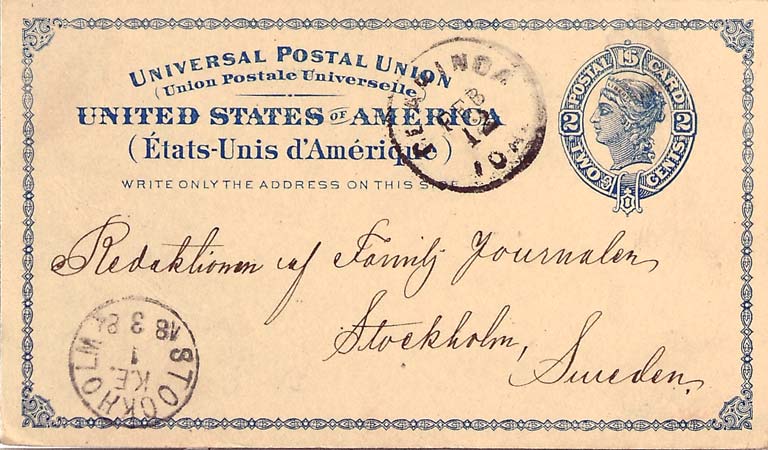 UNIVERSAL POSTAL UNION
(Union Postale Universelle)
UNITED STATES OF AMERICA
(États-Unis d'Amérique)
WRITE ONLY THE ADDRESS ON THIS SIDE
POSTAL CARD
2 2
TWO CENTS
FEB
12
IOWA
Redaktionen af Familj Journalen
Stockholm,
Sweden
STOCKHOLM
1
K.E.
18 3